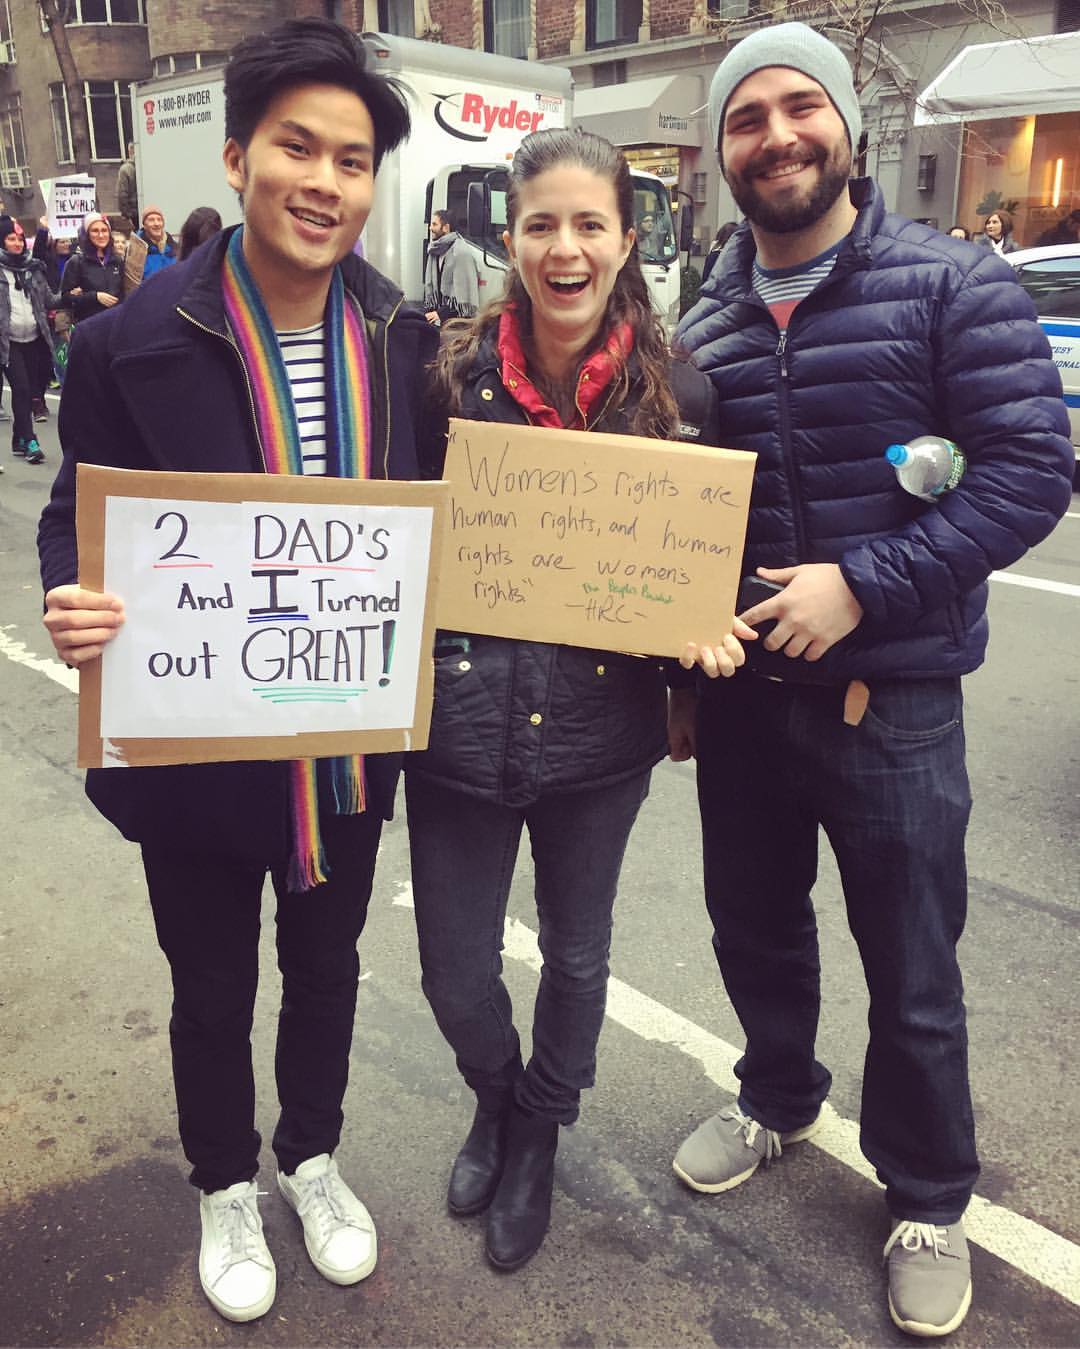 1-800-BY-RYDER
www.ryder.com
Ryder
THE WORLD
2 DAD'S
And I Turned
out GREAT!
"Women's rights are
human rights, and human
rights are women's
rights."
The People's President
-HRC-